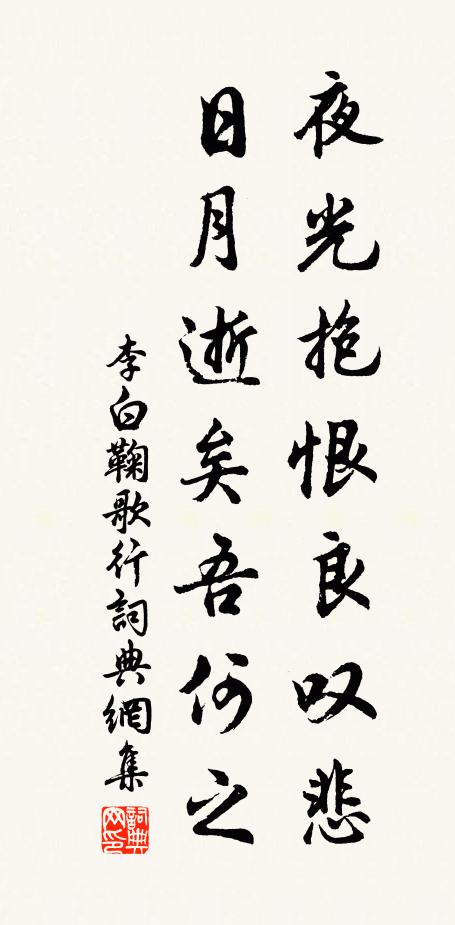 夜光抱恨良叹悲
日月逝矣吾何之
李白鞠歌行詞典網集
詞典網印